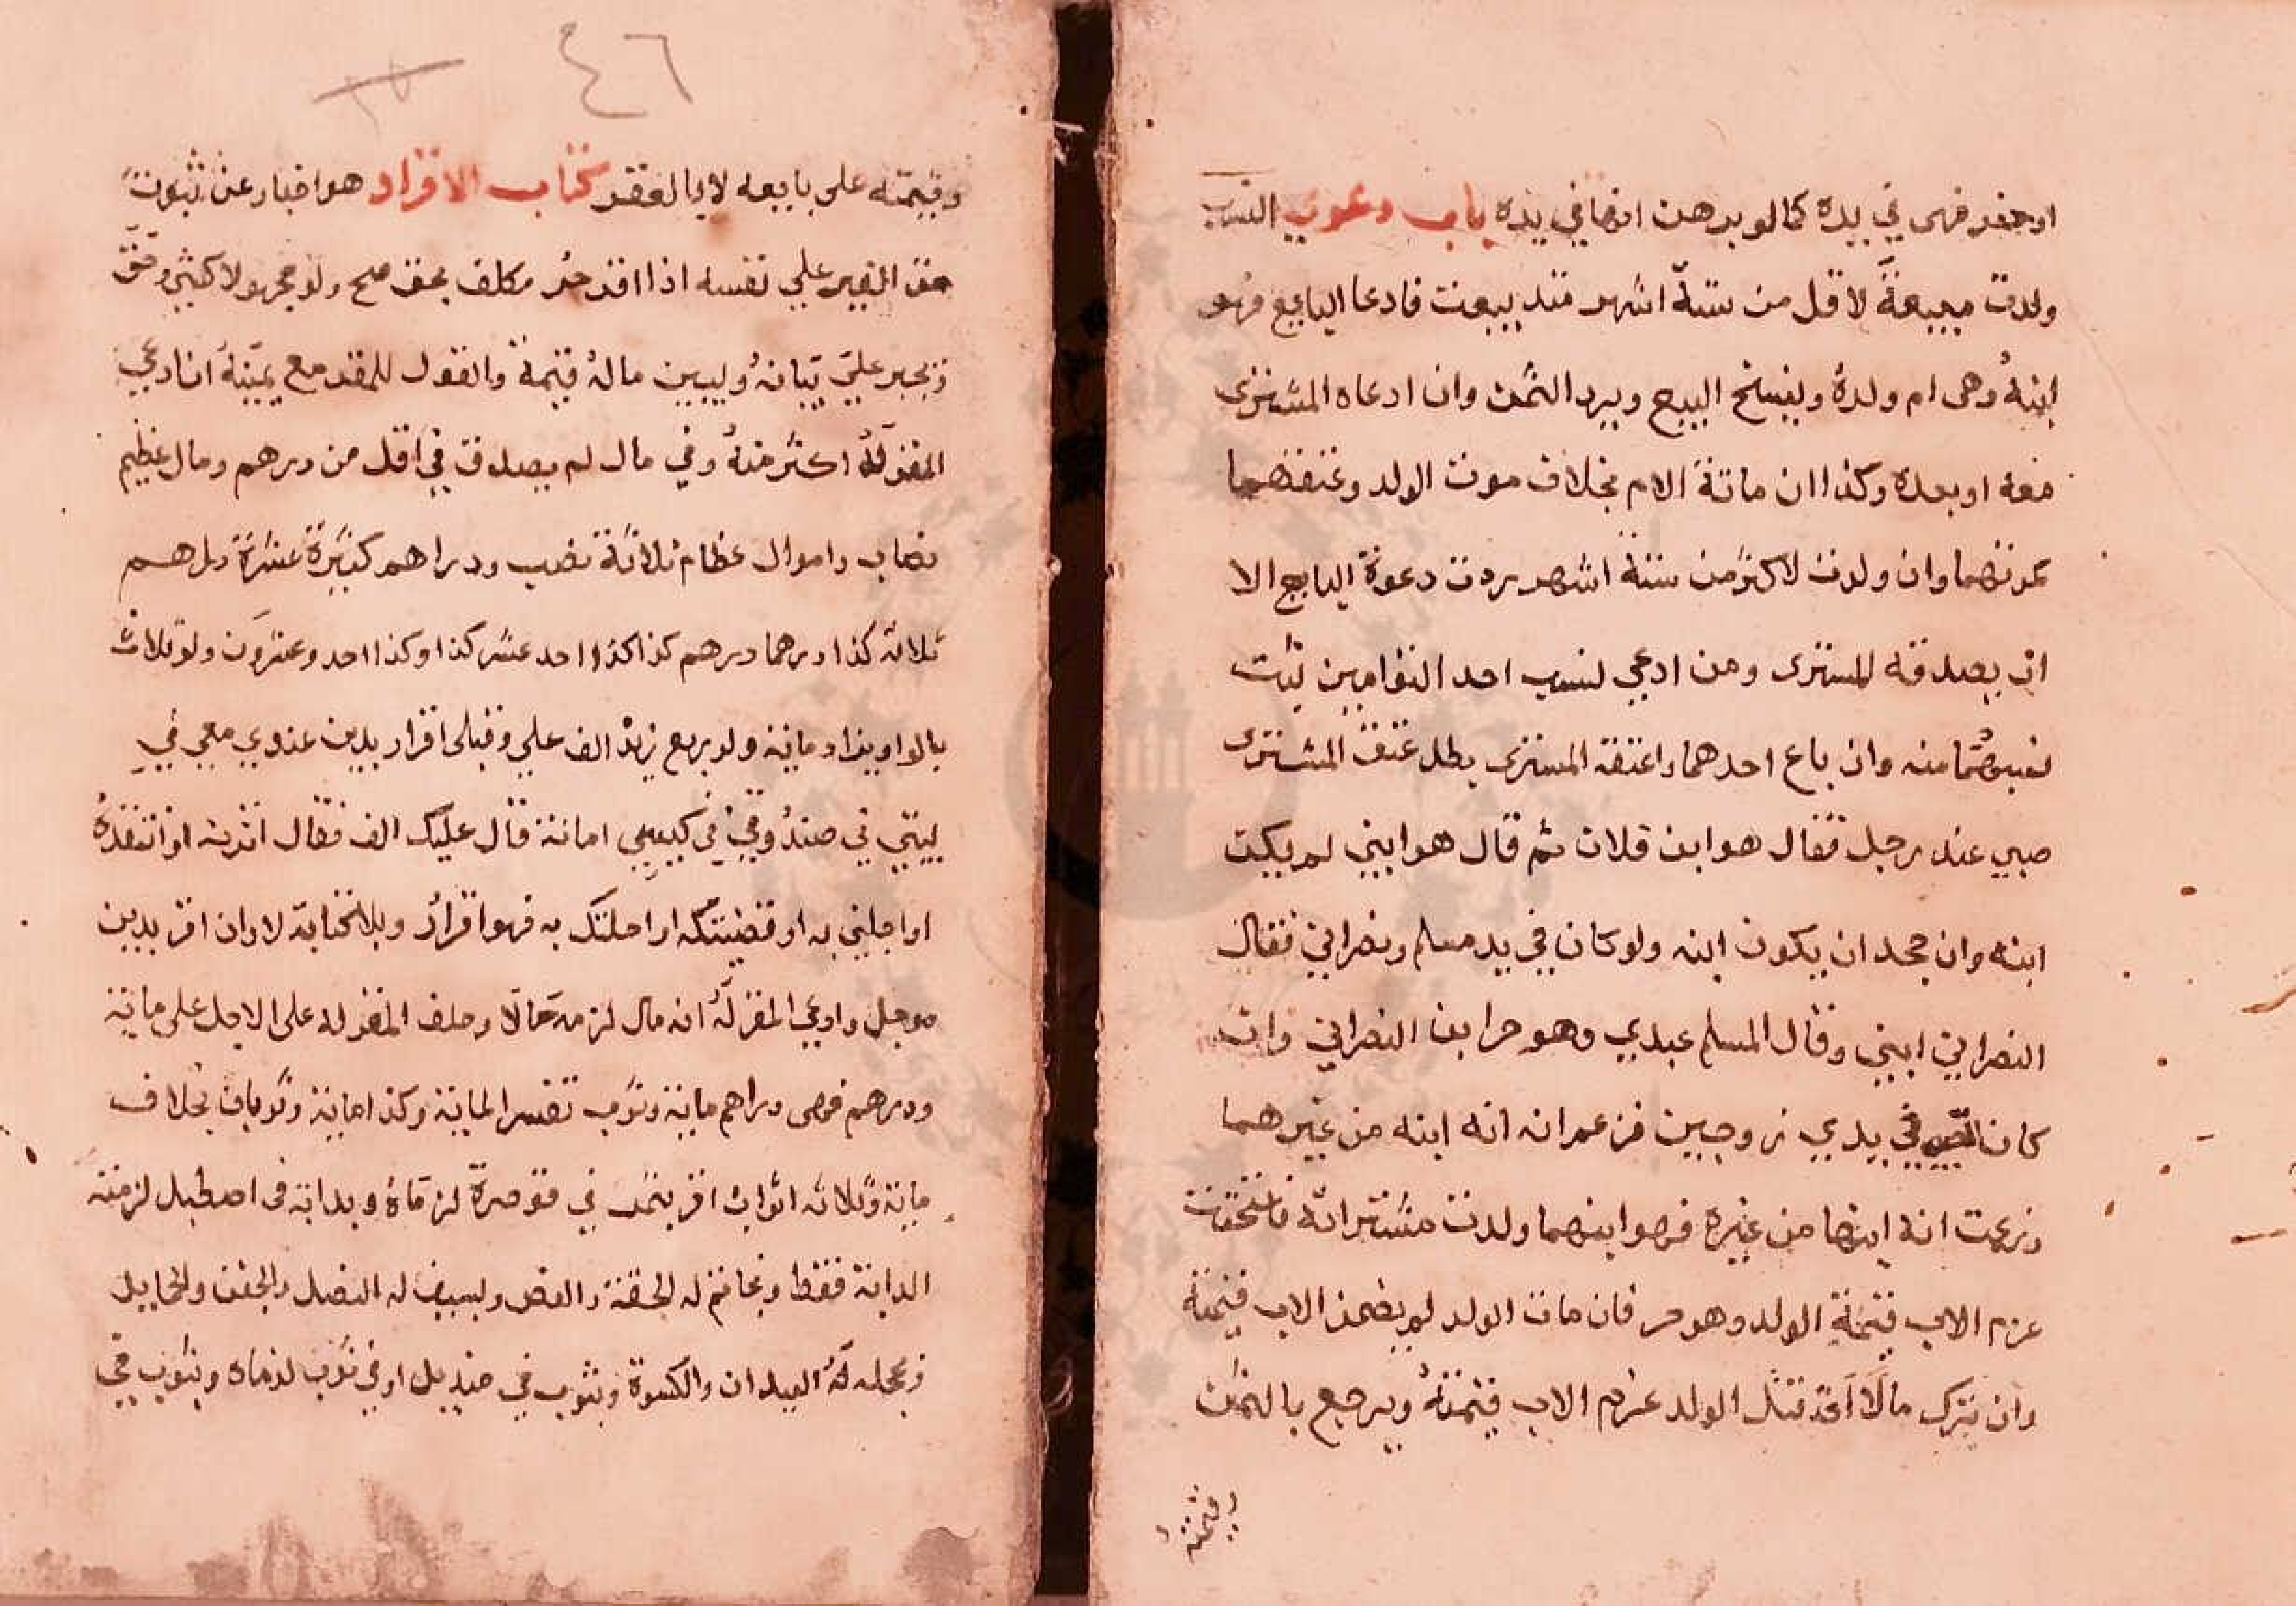 او حفر فهي في يده كما لو برهن انها في يده باب دعوي النسب
ولدت مبيعة لاقل من ستة اشهر منذ بيعت فادعا البايع فهو
ابنه وهى ام ولده ويفسخ البيع ويرد الثمن وان ادعاه المشترى
معه او بعده وكذا ان ماتة الام بخلاف موت الولد وعتقهما
كموتهما وان ولدت لاكثر من ستة اشهر ردت دعوة البايع الا
ان يصدقه المشترى ومن ادعي نسب احد التوامين ثبت
نسبهما منه وان باع احدهما واعتقه المشترى بطل عتق المشترى
صبي عند رجل فقال هو ابن فلان ثم قال هو ابني لم يكن
ابنه وان جحد ان يكون ابنه ولو كان في يد مسلم ونصراني فقال
النصراني ابني وقال المسلم عبدي وهو حر ابن النصراني وان
كان في يدي زوجين فزعم انه ابنه من غيرهما
وزعمت انه ابنها من غيره فهو ابنهما ولدت مشتراته فاستحقت
غرم الاب قيمة الولد وهو حر فان مات الولد لم يضمن الاب قيمته
وان ترك مالا قتل الولد غرم الاب قيمته ويرجع بالثمن
وقيمته
٤٦
وقيمته على بايعه لا بالعقر كتاب الاقرار هو اخبار عن ثبوت
حق الغير علي نفسه اذا اقر حر مكلف بحق صح ولو مجهولا كشي وحق
ويجبر علي بيانه ويبين ماله قيمة والقول للمقر مع يمينه ان ادعي
المقر له اكثر منه وفي مال لم يصدق في اقل من درهم ومال عظيم
نصاب واموال عظام ثلاثة نصب ودراهم كثيرة عشرة دراهم
ثلاثة كذا درهما درهم كذا كذا احد عشر كذا وكذا احد وعشرون ولو ثلاث
بالواو يزاد ماية ولو ربع زيد الف علي وقبلى اقرار بدين عندي معي في
بيتي في صندوقي في كيسي امانة قال عليك الف فقال اتزنه او انتقده
او اجلني به او قضيتكه او احلتك به فهو اقرار وبلا كناية لا وان اقر بدين
موجل وادعي المقر له انه حال لزمه حالا وحلف المقر له على الاجل على ماية
ودرهم فهى دراهم ماية وثوب تفسر الماية وكذا ماية وثوبان بخلاف
ماية وثلاثه اثواب اقر بتمر في قوصرة لزماه وبدابة فى اصطبل لزمته
الدابة فقط وبخاتم له الحلقة والفص وبسيف له النصل والجفن والحمايل
وبحجله له العيدان والكسوة وبثوب في منديل او في ثوب لزماه وبثوب في